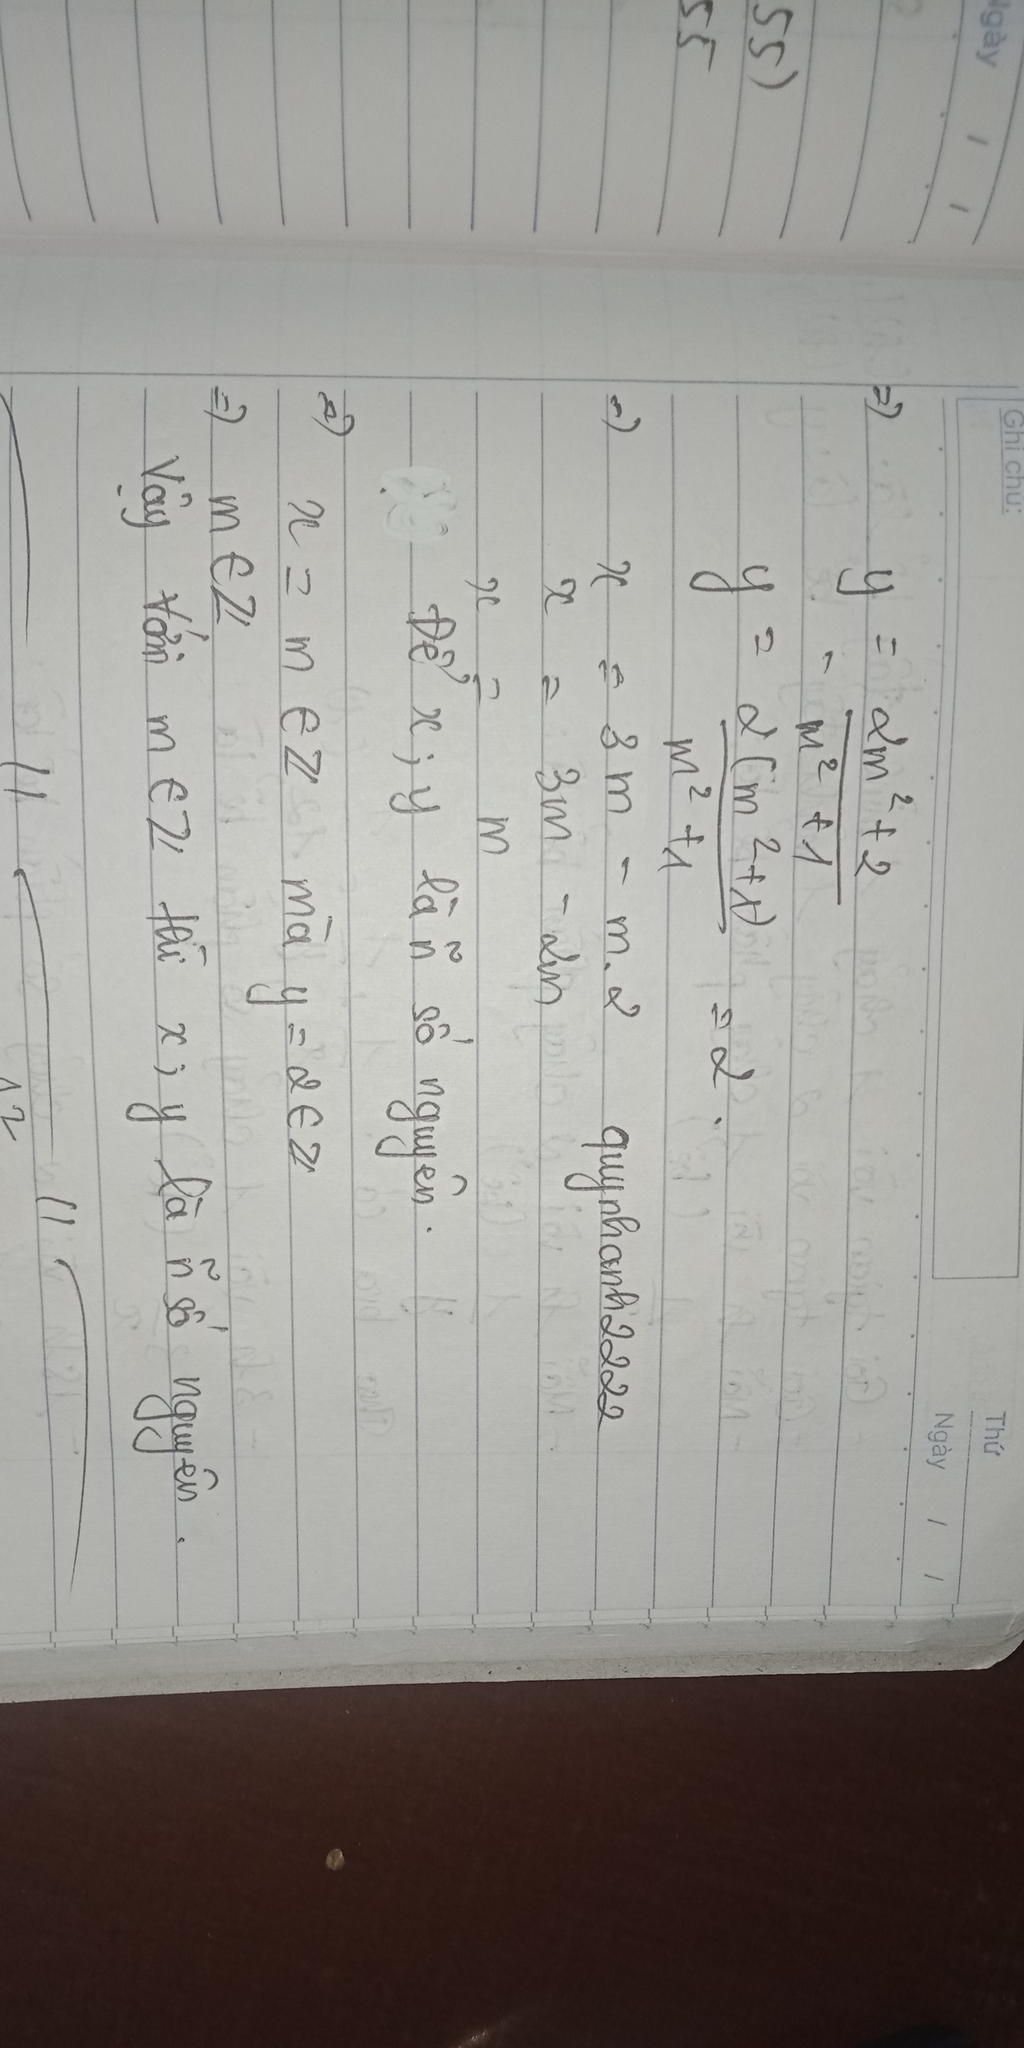 Ngày / /
55)
55
Ghi chú:
Thứ
Ngày / /
=) y = 2m² + 2
m² + 1
y = 2(m² + 1) = 2.
m² + 1
=) x = 3m - m.2 quynhanh2222
x = 3m - 2m
x = m
Để x; y là n̄ số nguyên.
=) x = m ∈ Z mà y = 2 ∈ Z
=) m ∈ Z
Vậy với m ∈ Z thì x; y là n̄ số nguyên.